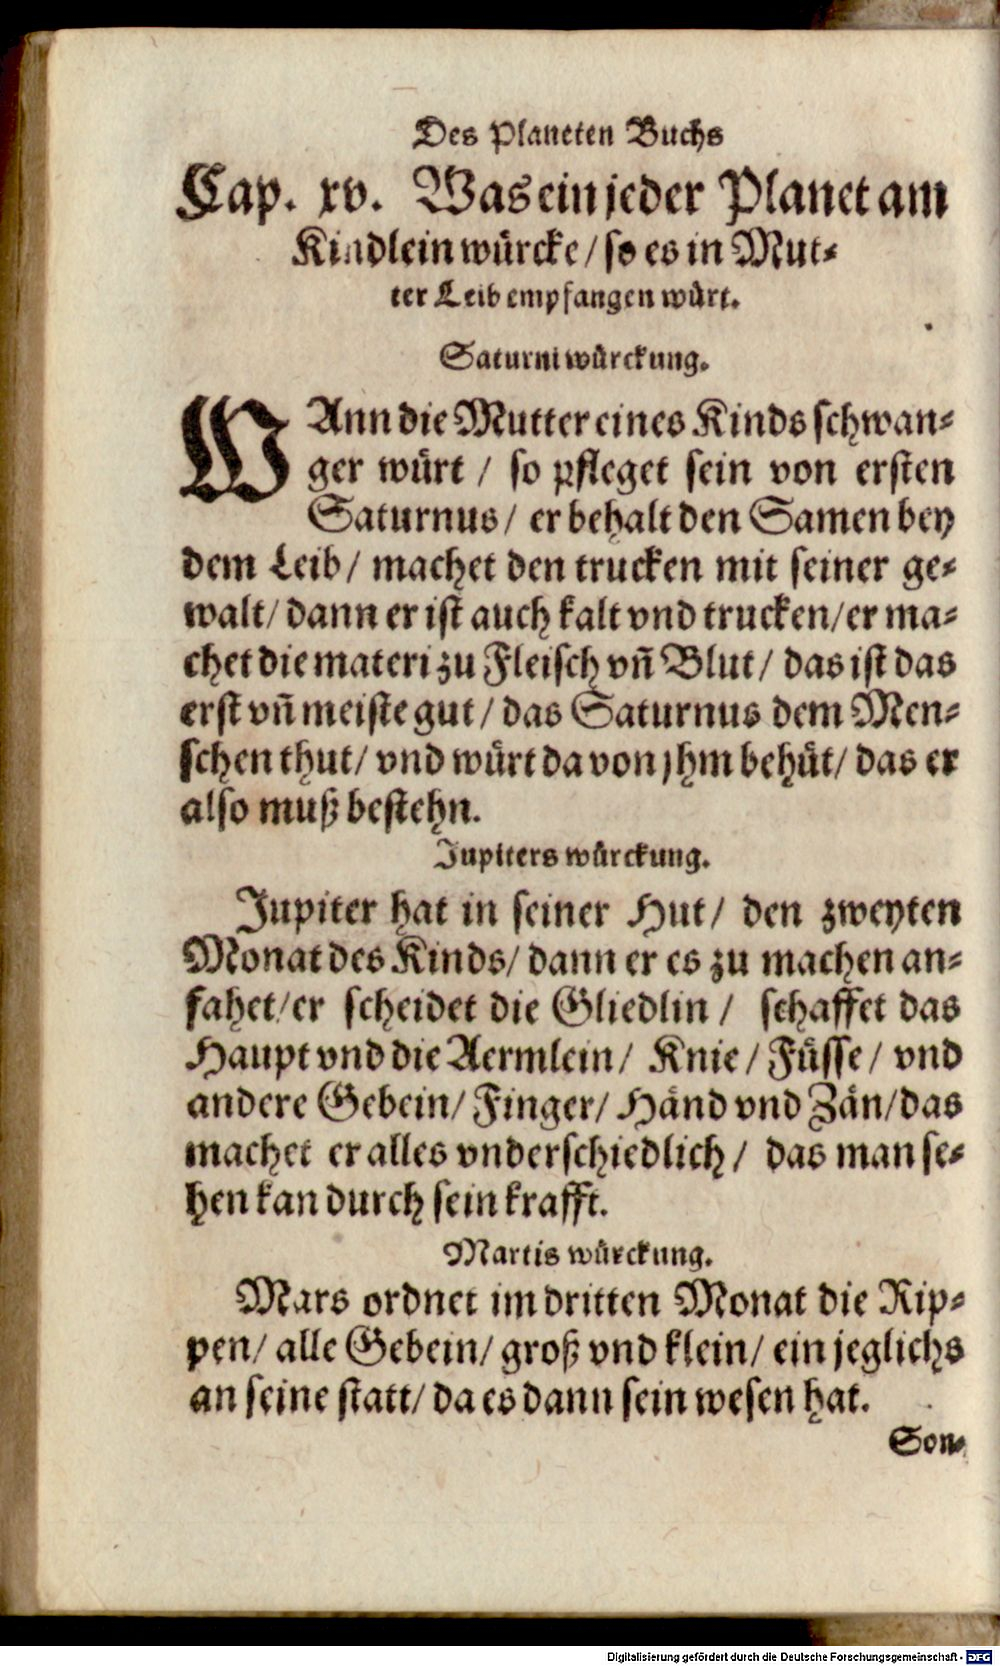 Des Planeten Buchs
Cap. xv. Was ein jeder Planet am
Kindlein würcke / so es in Mut-
ter Leib empfangen würt.
Saturni würckung.
WAnn die Mutter eines Kinds schwan-
ger würt / so pfleget sein von ersten
Saturnus / er behalt den Samen bey
dem Leib / machet den trucken mit seiner ge-
walt / dann er ist auch kalt vnd trucken / er ma-
chet die materi zu Fleisch vñ Blut / das ist das
erst vñ meiste gut / das Saturnus dem Men-
schen thut / vnd würt da von jhm behüt / das er
also muß bestehn.
Jupiters würckung.
Jupiter hat in seiner Hut / den zweyten
Monat des Kinds / dann er es zu machen an-
fahet / er scheidet die Gliedlin / schaffet das
Haupt vnd die Aermlein / Knie / Füsse / vnd
andere Gebein / Finger / Händ vnd Zän / das
machet er alles vnderschiedlich / das man se-
hen kan durch sein krafft.
Martis würckung.
Mars ordnet im dritten Monat die Rip-
pen / alle Gebein / groß vnd klein / ein jeglichs
an seine statt / da es dann sein wesen hat.
Son-
Digitalisierung gefördert durch die Deutsche Forschungsgemeinschaft - DFG